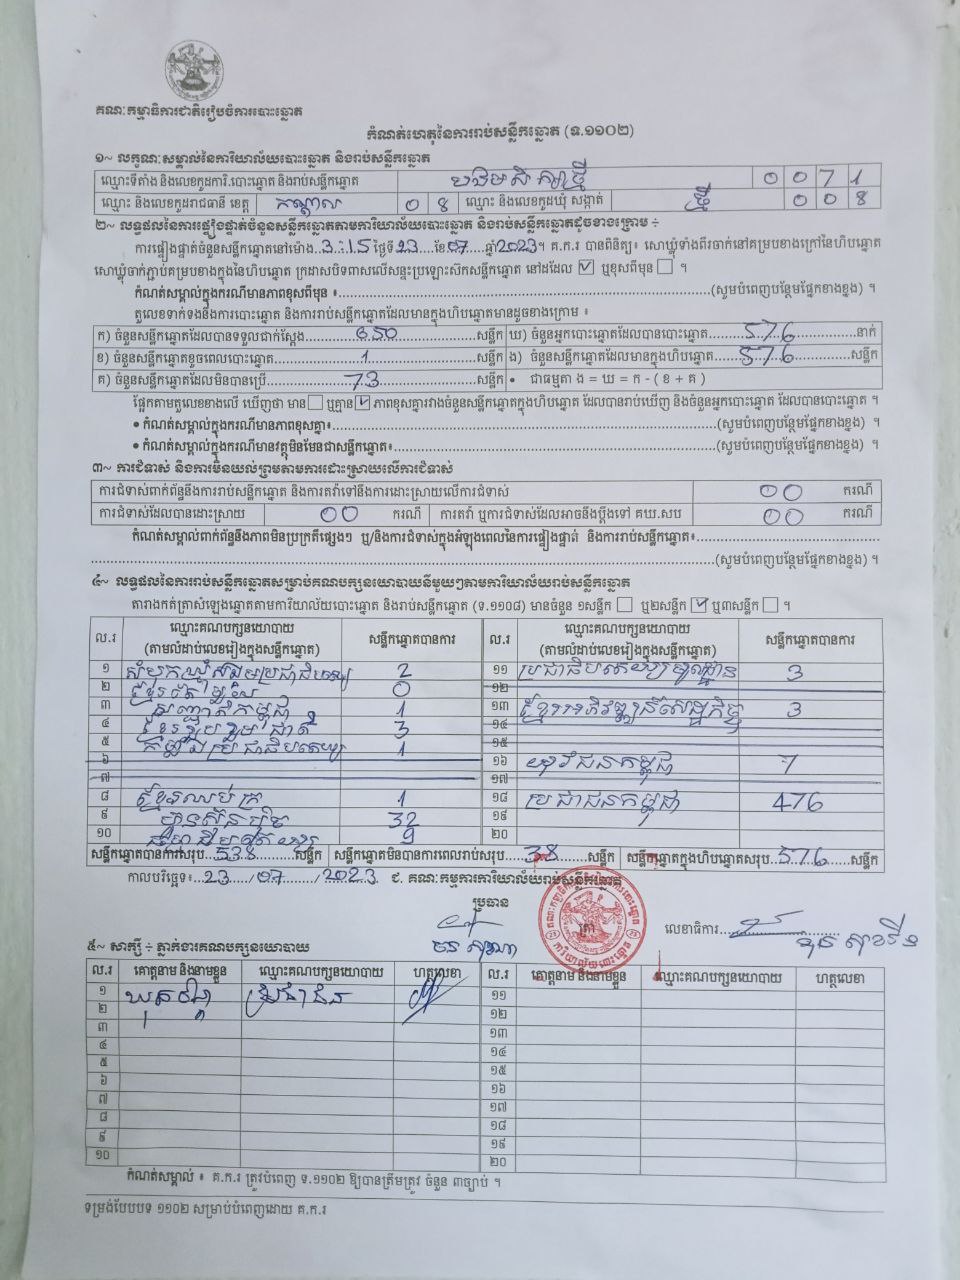 គណៈកម្មាធិការជាតិរៀបចំការបោះឆ្នោត
កំណត់ហេតុនៃការរាប់សន្លឹកឆ្នោត (ទ.១១០២)
១~ លក្ខណៈសម្គាល់នៃការិយាល័យបោះឆ្នោត និងរាប់សន្លឹកឆ្នោត
ឈ្មោះទីតាំង និងលេខកូដការិ.បោះឆ្នោត និងរាប់សន្លឹកឆ្នោត 0071
ឈ្មោះ និងលេខកូដរាជធានី ខេត្ត កណ្តាល 08 ឈ្មោះ និងលេខកូដឃុំ សង្កាត់ ថ្មី 008
២~ លទ្ធផលនៃការផ្ទៀងផ្ទាត់ចំនួនសន្លឹកឆ្នោតតាមការិយាល័យបោះឆ្នោត និងរាប់សន្លឹកឆ្នោតដូចខាងក្រោម ÷
ការផ្ទៀងផ្ទាត់ចំនួនសន្លឹកឆ្នោតនៅម៉ោង 3:15 ថ្ងៃទី 23 ខែ 07 ឆ្នាំ 2023។ គ.ក.រ បានពិនិត្យ៖ សោឃ្លុំទាំងពីរចាក់នៅគម្របខាងក្រៅនៃហិបឆ្នោត
សោឃ្លុំចាក់ភ្ជាប់គម្របខាងក្នុងនៃហិបឆ្នោត ក្រដាសបិទពាសលើសន្ទះប្រឡោះស៊កសន្លឹកឆ្នោត នៅដដែល ☑ ឬខុសពីមុន ☐ ។
កំណត់សម្គាល់ក្នុងករណីមានភាពខុសពីមុន ៖ (សូមបំពេញបន្ថែមផ្នែកខាងខ្នង) ។
តួលេខទាក់ទងនឹងការបោះឆ្នោត និងការរាប់សន្លឹកឆ្នោតដែលមានក្នុងហិបឆ្នោតមានដូចខាងក្រោម ៖
ក) ចំនួនសន្លឹកឆ្នោតដែលបានទទួលជាក់ស្តែង 650 សន្លឹក ឃ) ចំនួនអ្នកបោះឆ្នោតដែលបានបោះឆ្នោត 576 នាក់
ខ) ចំនួនសន្លឹកឆ្នោតខូចពេលបោះឆ្នោត 1 សន្លឹក ង) ចំនួនសន្លឹកឆ្នោតដែលមានក្នុងហិបឆ្នោត 576 សន្លឹក
គ) ចំនួនសន្លឹកឆ្នោតដែលមិនបានប្រើ 73 សន្លឹក • ជាធម្មតា ង = ឃ = ក - ( ខ + គ )
ផ្អែកតាមតួលេខខាងលើ ឃើញថា មាន ☐ ឬគ្មាន ☑ ភាពខុសគ្នារវាងចំនួនសន្លឹកឆ្នោតក្នុងហិបឆ្នោត ដែលបានរាប់ឃើញ និងចំនួនអ្នកបោះឆ្នោត ដែលបានបោះឆ្នោត ។
• កំណត់សម្គាល់ក្នុងករណីមានភាពខុសគ្នា៖ (សូមបំពេញបន្ថែមផ្នែកខាងខ្នង) ។
• កំណត់សម្គាល់ក្នុងករណីមានវត្ថុមិនមែនជាសន្លឹកឆ្នោត៖ (សូមបំពេញបន្ថែមផ្នែកខាងខ្នង) ។
៣~ ការជំទាស់ និងការមិនយល់ព្រមតាមការដោះស្រាយលើការជំទាស់
ការជំទាស់ពាក់ព័ន្ធនឹងការរាប់សន្លឹកឆ្នោត និងការតវ៉ាទៅនឹងការដោះស្រាយលើការជំទាស់ 00 ករណី
ការជំទាស់ដែលបានដោះស្រាយ 00 ករណី ការតវ៉ា ឬការជំទាស់ដែលអាចនឹងប្តឹងទៅ គឃ.សប 00 ករណី
កំណត់សម្គាល់ពាក់ព័ន្ធនឹងភាពមិនប្រក្រតីផ្សេងៗ ឬ/និងការជំទាស់ក្នុងអំឡុងពេលនៃការផ្ទៀងផ្ទាត់ និងការរាប់សន្លឹកឆ្នោត៖
(សូមបំពេញបន្ថែមផ្នែកខាងខ្នង) ។
៤~ លទ្ធផលនៃការរាប់សន្លឹកឆ្នោតសម្រាប់គណបក្សនយោបាយនីមួយៗតាមការិយាល័យរាប់សន្លឹកឆ្នោត
តារាងកត់ត្រាសំឡេងឆ្នោតតាមការិយាល័យបោះឆ្នោត និងរាប់សន្លឹកឆ្នោត (ទ.១១០៨) មានចំនួន ១សន្លឹក ☐ ឬ២សន្លឹក ☑ ឬ៣សន្លឹក ☐ ។
ល.រ ឈ្មោះគណបក្សនយោបាយ (តាមលំដាប់លេខរៀងក្នុងសន្លឹកឆ្នោត) សន្លឹកឆ្នោតបានការ ល.រ ឈ្មោះគណបក្សនយោបាយ (តាមលំដាប់លេខរៀងក្នុងសន្លឹកឆ្នោត) សន្លឹកឆ្នោតបានការ
១ សំបុកឃ្មុំសង្គមប្រជាធិបតេយ្យ 2 ១១ ប្រជាធិបតេយ្យមូលដ្ឋាន 3
២ 0 ១២
៣ សញ្ជាតិកម្ពុជា 1 ១៣ ខ្មែរអភិវឌ្ឍន៍សេដ្ឋកិច្ច 3
៤ ខ្មែររួបរួមជាតិ 3 ១៤
៥ កម្លាំងប្រជាធិបតេយ្យ 1 ១៥
៦ ១៦ យុវជនកម្ពុជា 7
៧ ១៧
៨ ខ្មែរឈប់ក្រ 1 ១៨ ប្រជាជនកម្ពុជា 476
៩ ហ៊្វុនស៊ិនប៉ិច 32 ១៩
១០ 9 ២០
សន្លឹកឆ្នោតបានការសរុប 538 សន្លឹក សន្លឹកឆ្នោតមិនបានការពេលរាប់សរុប 38 សន្លឹក សន្លឹកឆ្នោតក្នុងហិបឆ្នោតសរុប 576 សន្លឹក
កាលបរិច្ឆេទ៖ 23/07/2023 ៩. គណៈកម្មការការិយាល័យរាប់សន្លឹកឆ្នោត
ប្រធាន
លេខាធិការ
៥~ សាក្សី ÷ ភ្នាក់ងារគណបក្សនយោបាយ
ល.រ គោត្តនាម និងនាមខ្លួន ឈ្មោះគណបក្សនយោបាយ ហត្ថលេខា ល.រ គោត្តនាម និងនាមខ្លួន ឈ្មោះគណបក្សនយោបាយ ហត្ថលេខា
១ ប្រជាជន ១១
២ ១២
៣ ១៣
៤ ១៤
៥ ១៥
៦ ១៦
៧ ១៧
៨ ១៨
៩ ១៩
១០ ២០
កំណត់សម្គាល់ ៖ គ.ក.រ ត្រូវបំពេញ ទ.១១០២ ឱ្យបានត្រឹមត្រូវ ចំនួន ៣ច្បាប់ ។
ទម្រង់បែបបទ ១១០២ សម្រាប់បំពេញដោយ គ.ក.រ